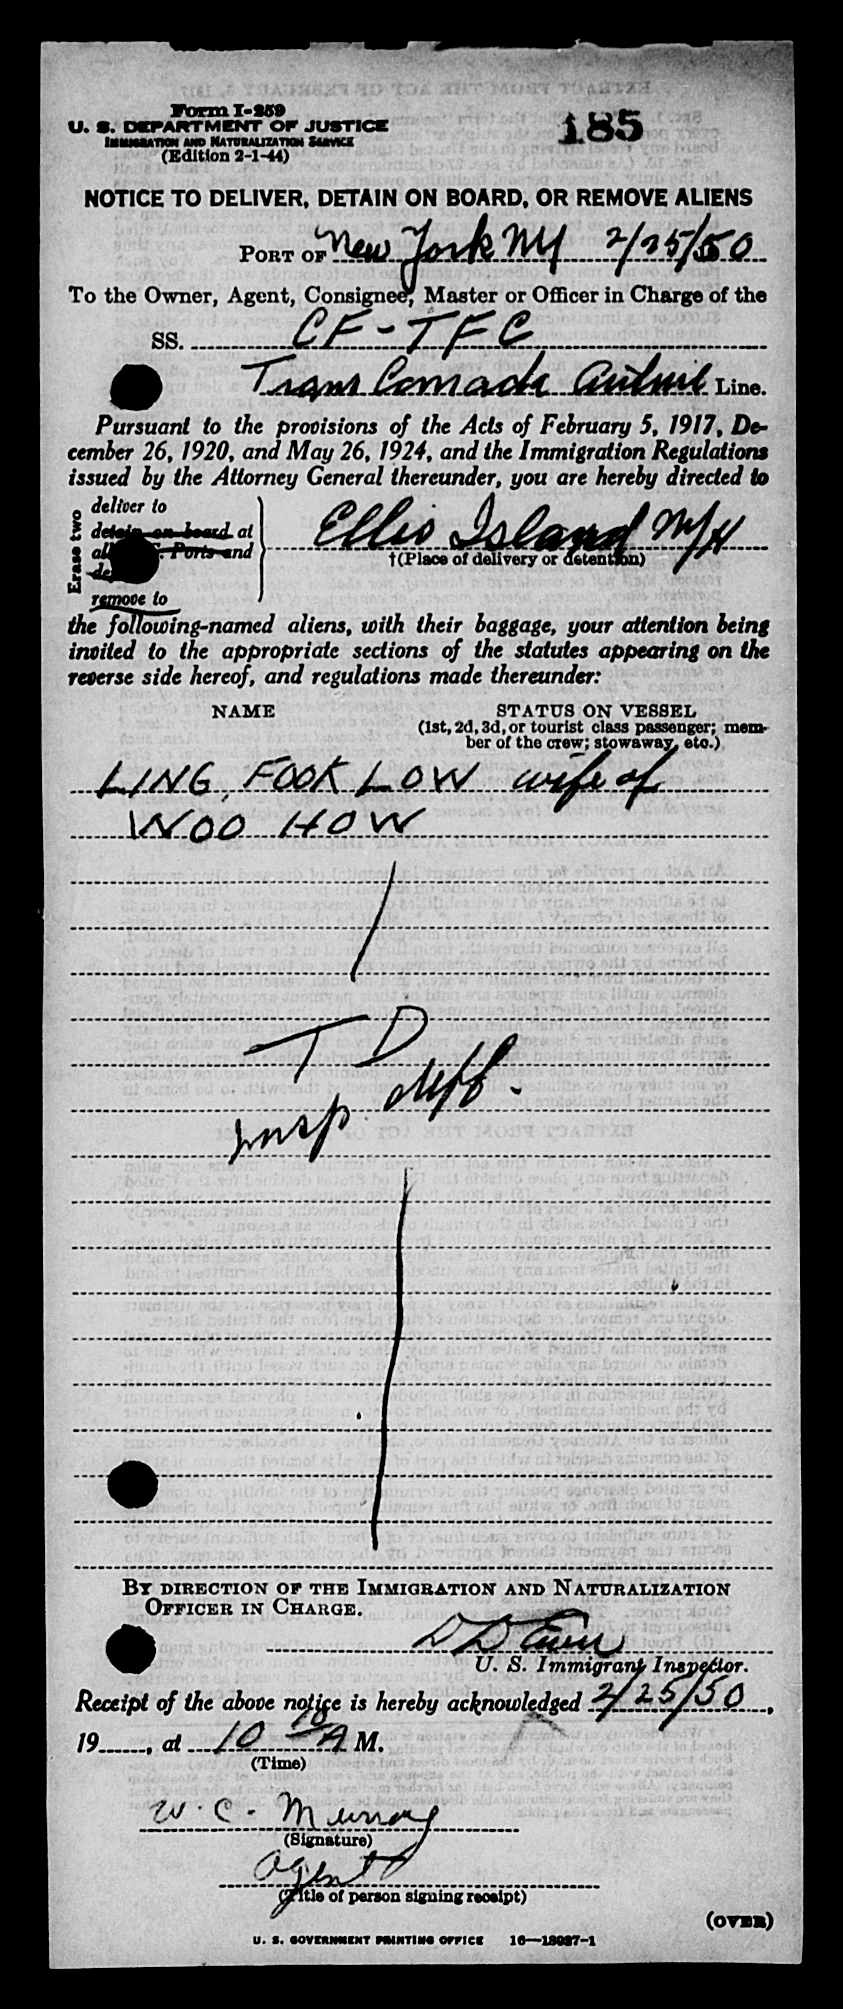 Form I-259
U. S. DEPARTMENT OF JUSTICE
IMMIGRATION AND NATURALIZATION SERVICE
(Edition 2-1-44)
185
NOTICE TO DELIVER, DETAIN ON BOARD, OR REMOVE ALIENS
PORT OF New York NY 2/25/50
To the Owner, Agent, Consignee, Master or Officer in Charge of the
SS. CF-TFC
Trans Canada Line.
Pursuant to the provisions of the Acts of February 5, 1917, De-
cember 26, 1920, and May 26, 1924, and the Immigration Regulations
issued by the Attorney General thereunder, you are hereby directed to
Erase two
deliver to
detain on board at
Ports and
remove to
Ellis Island
†(Place of delivery or detention)
the following-named aliens, with their baggage, your attention being
invited to the appropriate sections of the statutes appearing on the
reverse side hereof, and regulations made thereunder:
NAME STATUS ON VESSEL
(1st, 2d, 3d, or tourist class passenger; mem-
ber of the crew; stowaway, etc.)
LING, FOOK LOW wife of
WOO HOW
T D
insp. diff.
BY DIRECTION OF THE IMMIGRATION AND NATURALIZATION
OFFICER IN CHARGE.
U. S. Immigrant Inspector.
Receipt of the above notice is hereby acknowledged 2/25/50,
19____, at 10 10 A M.
(Time)
W. C. Murray
(Signature)
Agent
(Title of person signing receipt)
(OVER)
U. S. GOVERNMENT PRINTING OFFICE 16—13027-1